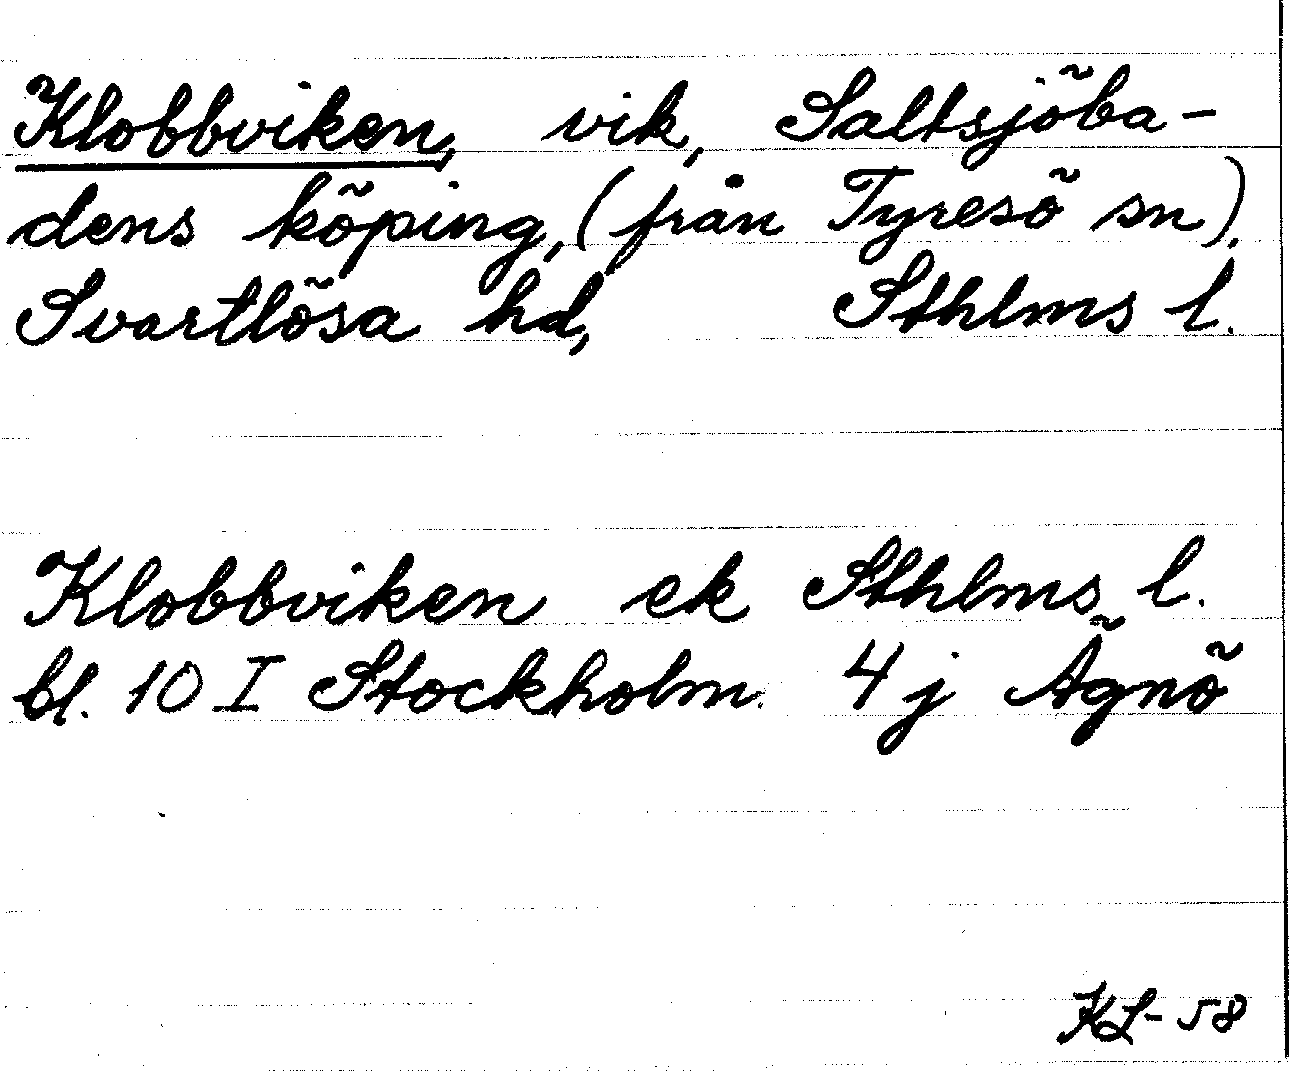 Klobbviken, vik, Saltsjöba-
dens köping, (från Tyresö sn),
Svartlösa hd, Sthlms l.
Klobbviken ek Sthlms l.
bl. 10 I Stockholm. 4 j Ägnö
KL-58